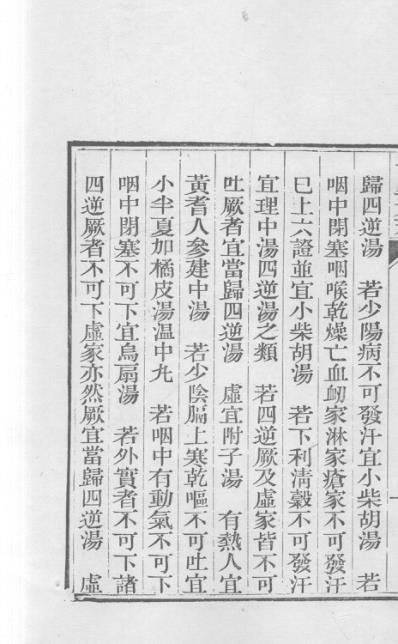 歸四逆湯　若少陽病不可發汗宜小柴胡湯　若
咽中閉塞咽喉乾燥亡血衂家淋家瘡家不可發汗
巳上六證並宜小柴胡湯　若下利淸穀不可發汗
宜理中湯四逆湯之類　若四逆厥及虛家皆不可
吐厥者宜當歸四逆湯　虛宜附子湯　有熱人宜
黃耆人參建中湯　若少陰膈上寒乾嘔不可吐宜
小半夏加橘皮湯溫中丸　若咽中有動氣不可下
咽中閉塞不可下宜烏扇湯　若外實者不可下諸
四逆厥者不可下虛家亦然厥宜當歸四逆湯　虛